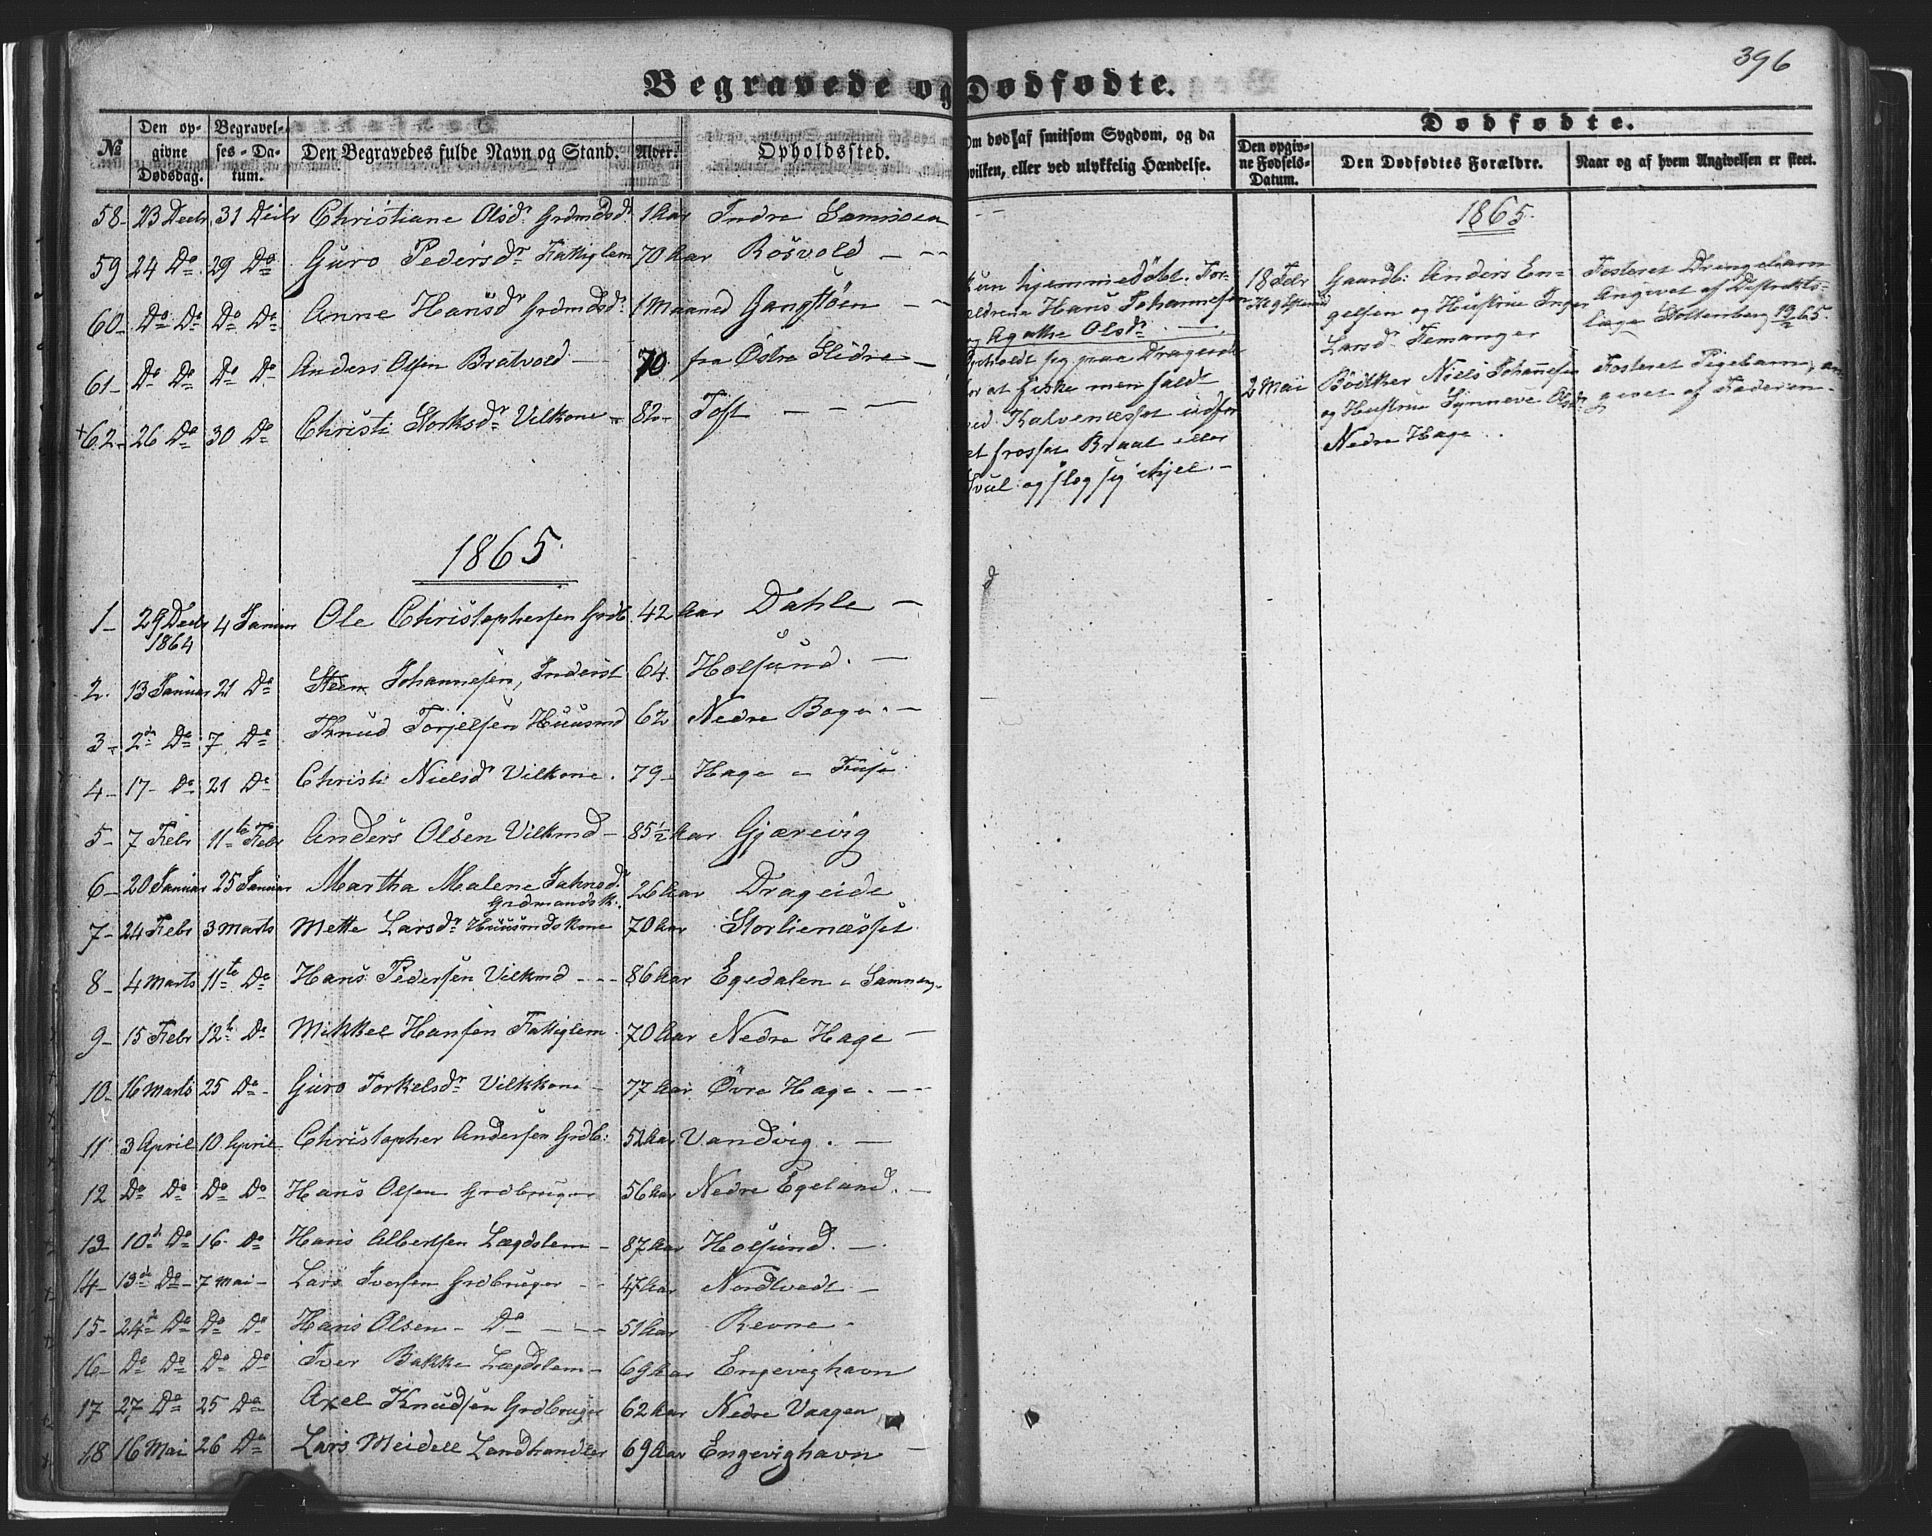 396
Begravede og Dødfødte.
№ Den opgivne Dødsdag. Begravelses-Datum. Den Begravedes fulde Navn og Stand. Alder. Opholdssted. Om død af smitsom Sygdom, og da hvilken, eller ved ulykkelig Hændelse. Dødfødte. Den opgivne Fødsels-Datum. Den Dødfødtes Forældre. Naar og af hvem Angivelsen er skeet.
58- 23 Decbr 31 Decbr Christiane Olsdr Grdmdsdr 1 Aar Indre
59 24 Do 29 Do Guro Pedersdr Fattiglem 70 Aar Rosvold - --
60- Do Do Do Do Anne Hansdr Grdmdsdr 1 Maaned - --
61- Do Do Do Do Anders Olsen Bratvold 70 fra Østre Slidre -
+62- 26 Do 30 Do Christi Vilkone - 82- Toft - - -
kun hjemmedøbt. For-
ældrene Hans Johannesen
og Agathe Olsdr
opholdt sig paa Drageide
for at fiske men faldt
ved Kalvenæsset udfor
et frosset Braat eller
og slog sig ihjel. -
1865.
18 Febr Gaardb: Anders En-
gelsen og Hustrue Inger
Larsdr Femanger
Fosteret Drengebarn
Angivet af Distrikts-
læge
2 Mai Bødtker Niels Johannesen
og Hustrue Synneve Olsdr
Nedre Hage.
Fosteret Pigebarn, an
givet af Faderen -
1865.
1- 29 Decbr 1864 4 Januar Ole Christophersen Grdb. 42 Aar Dahle -
2. 13 Januar 21 Do Steen Johannesen, Inderst 64. Holsund. -
3- 2de Do 7 Do Knud Torjelsen Huusmd 62 Nedre Boge. -
4- 17- Do 21 Do Christi Nielsdr Vilkone. 79- Hage i Fuse
5- 7 Febr 11te Febr Anders Olsen Vilkmd - 85½ Aar Gjærevig
6- 20 Januar 25 Januar Martha Malene Grdmandsk. 26 Aar Drageide
7- 24 Febr 3 Marts Mette Larsdr Huusmdskone 70 Aar Storlienæsset
8- 4 Marts 11te Do Hans Pedersen Vilkmd - - - 86 Aar Egedalen i Samnang.
9- 15 Febr 12te Do Mikkel Hansen Fattiglem 70 Aar Nedre Hage -
10- 16 Marts 25 Do - Guro Torkelsdr Vilkkone - 77 Aar Øvre Hage. - --
11 3 April 10. April Christopher Andersen Grdb: 52 Aar Vandvig. -
12 Do Do Do Do Hans Olsen Grdbruger 56 Aar Nedre Egeland. -
13- 10de Do 16- Do Hans Albertsen Lægdslem - 87 Aar Holsund. -
14- 13de Do - 7 Mai - Lars Iversen Grdbruger - - 47 Aar Nordtvedt -
15- 24de Do Do Do Hans Olsen - Do - - - 51 Aar Revne -
16- Do Do Do Do Iver Bakke Lægdslem - 69 Aar Engevighavn
17 27 Do 25 Do Axel Knudsen Grdbruger 62 Aar Nedre Vaagen
18 16 Mai 26 Do Lars Meidell Landhandler 69 Aar Engevighavn -